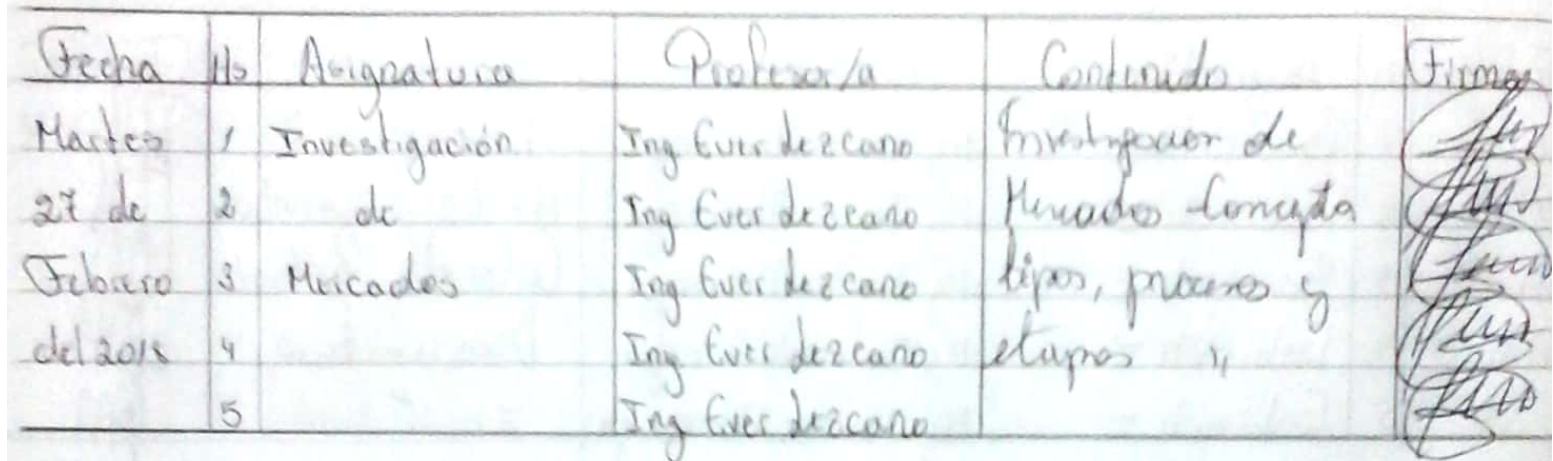 Fecha Hs Asignatura Profesor/a Contenido Firma
Martes 1 Investigación Ing Ever Lezcano Investigación de
27 de 2 de Ing Ever Lezcano Mercados Concepto
Febrero 3 Mercados Ing Ever Lezcano tipos, procesos y
del 2018 4 Ing Ever Lezcano etapas "
5 Ing Ever Lezcano